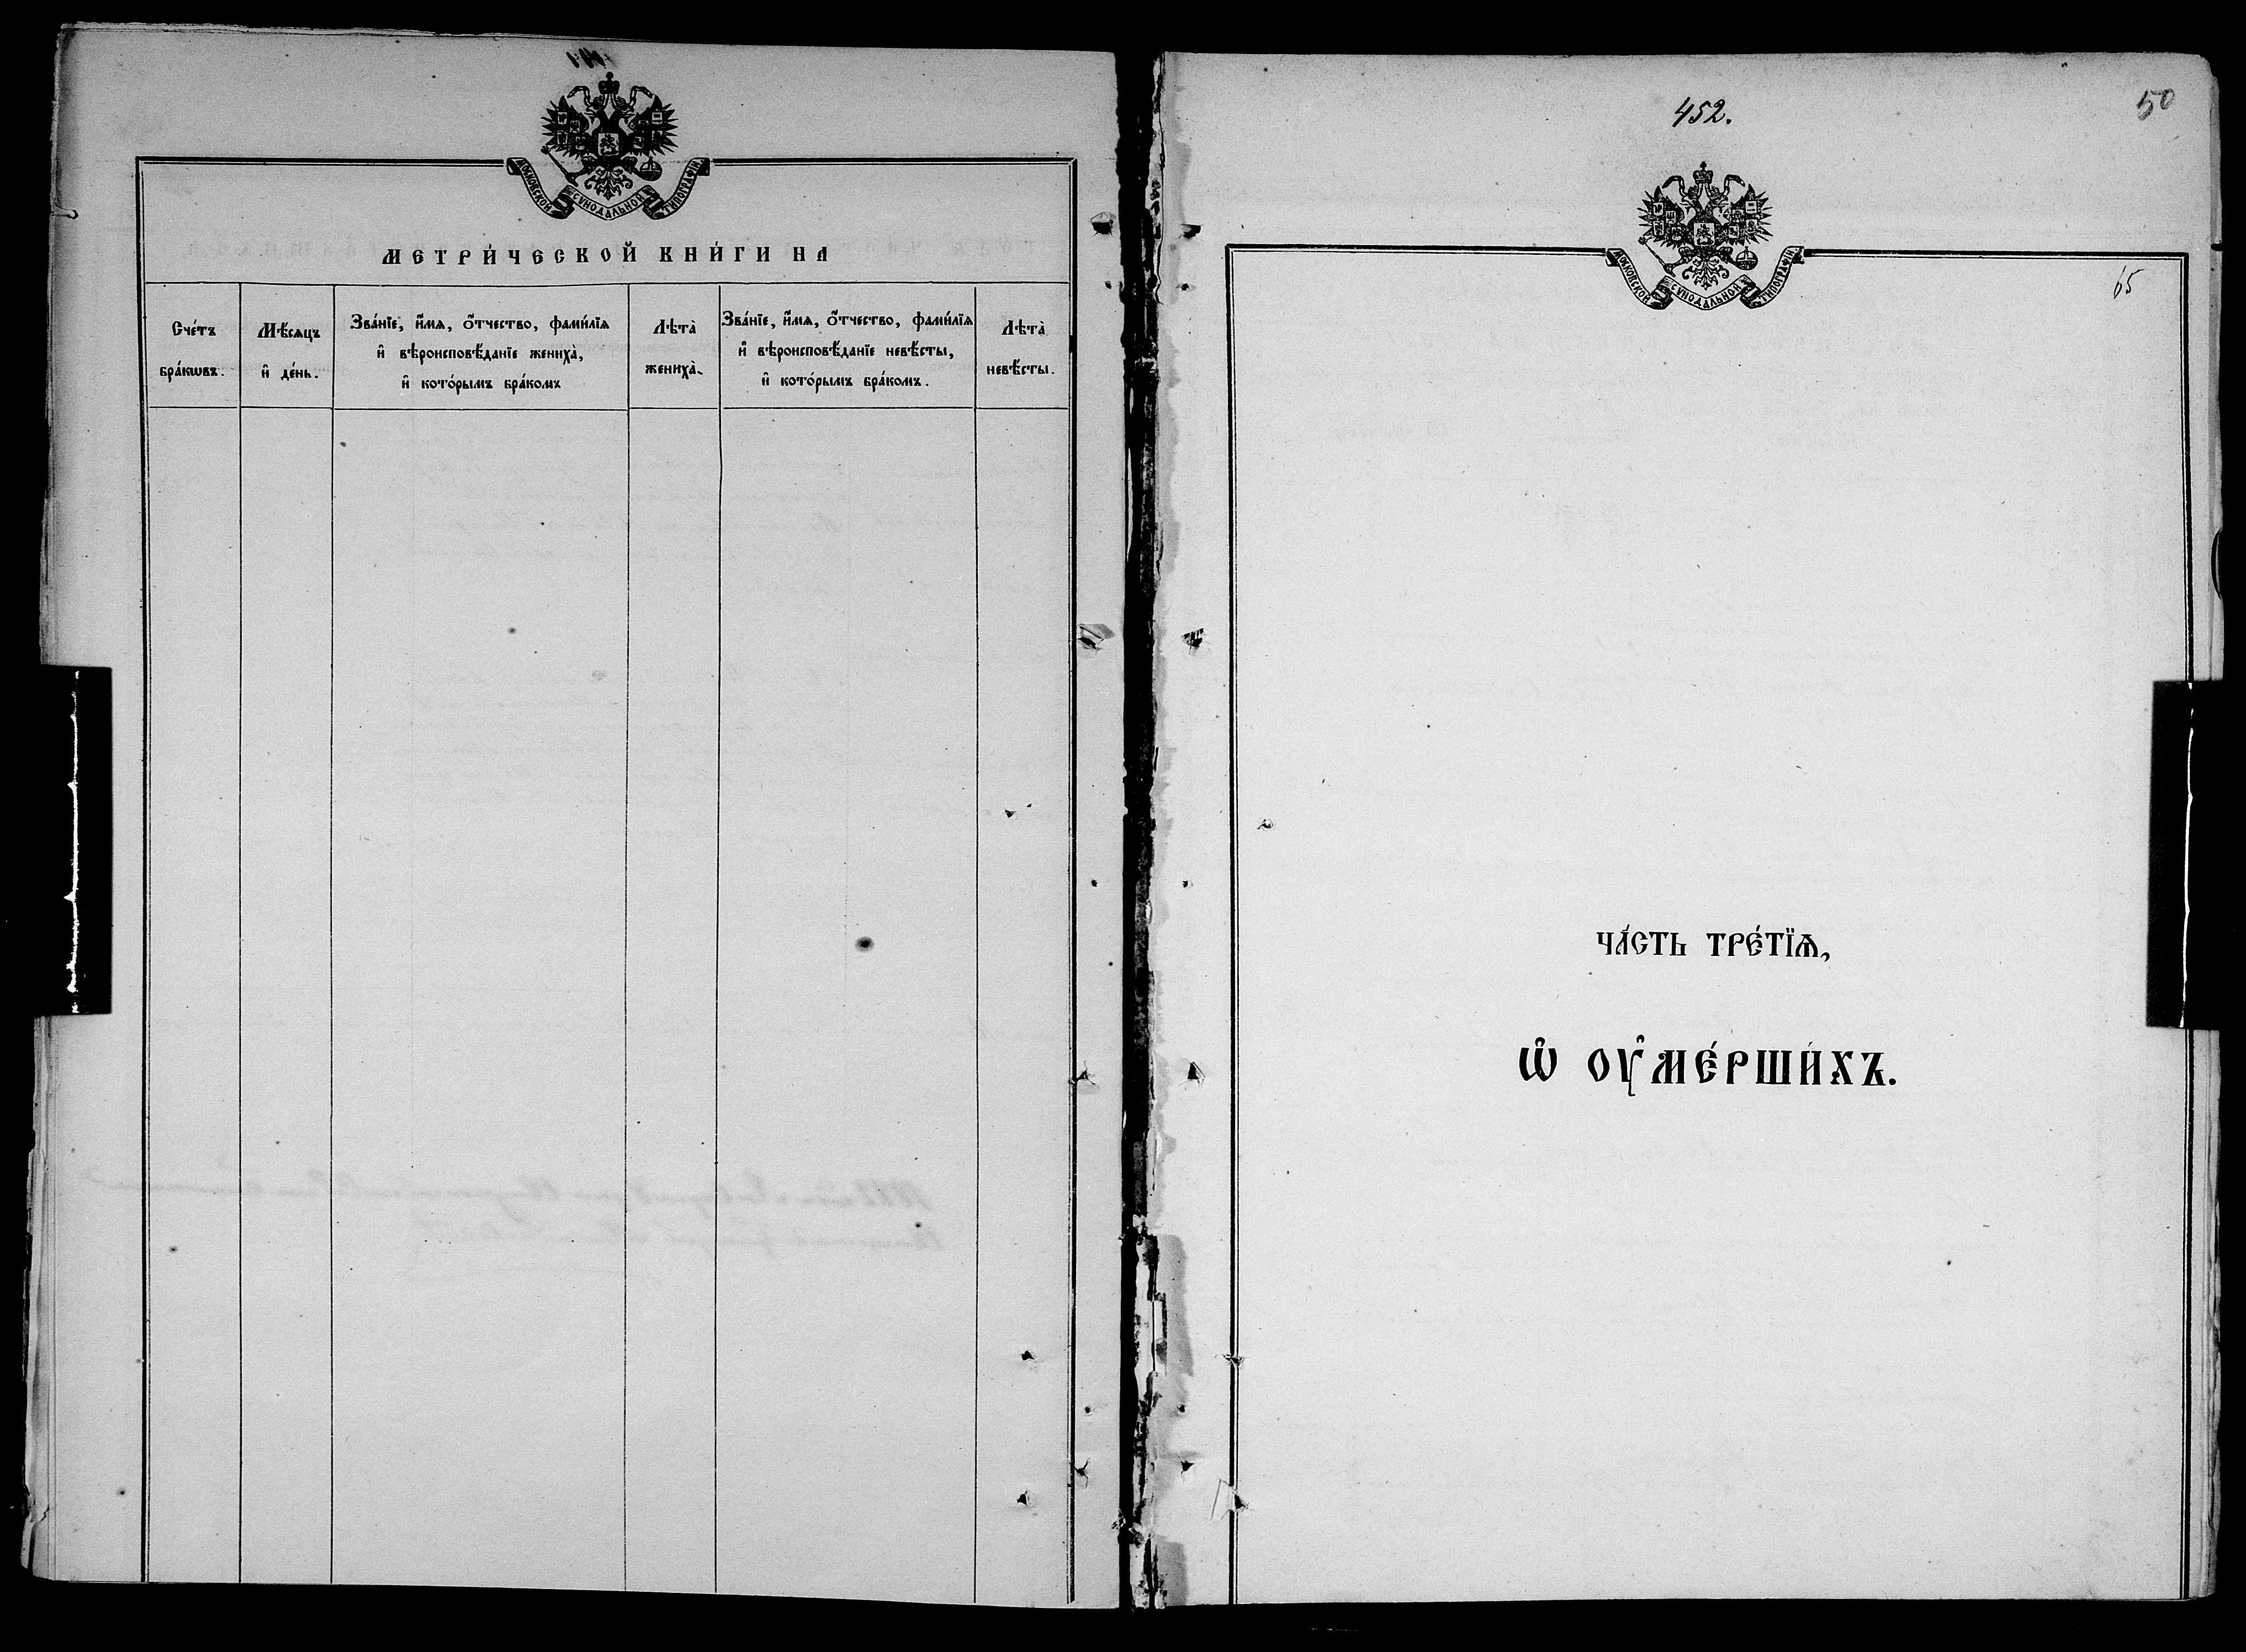 МОСКОВСКОЙ СѴНОДАЛЬНОЙ ТИПОГРАФІИ
МЕТРИ́ЧЕСКОЙ КНИ́ГИ НА
Сче́тъ
бра́кѡвъ.
Мѣ́сяцъ
и҆ де́нь.
Зва́нїе, и҆́мѧ, ѻ҆́тчество, фами́лїѧ
и҆ вѣроисповѣ́данїе жениха̀,
и҆ кото́рымъ бра́комъ
Лѣ́та̀
жениха̀.
Зва́нїе, и҆́мѧ, ѻ҆́тчество, фами́лїѧ
и҆ вѣроисповѣ́данїе невѣ́сты,
и҆ кото́рымъ бра́комъ.
Лѣ́та̀
невѣ́сты.
452.
50
МОСКОВСКОЙ СѴНОДАЛЬНОЙ ТИПОГРАФІИ
65
ЧА́СТЬ ТРЕ́ТЇѦ,
Ѡ҆ ОУ҆МЕ́РШИ́ХЪ.